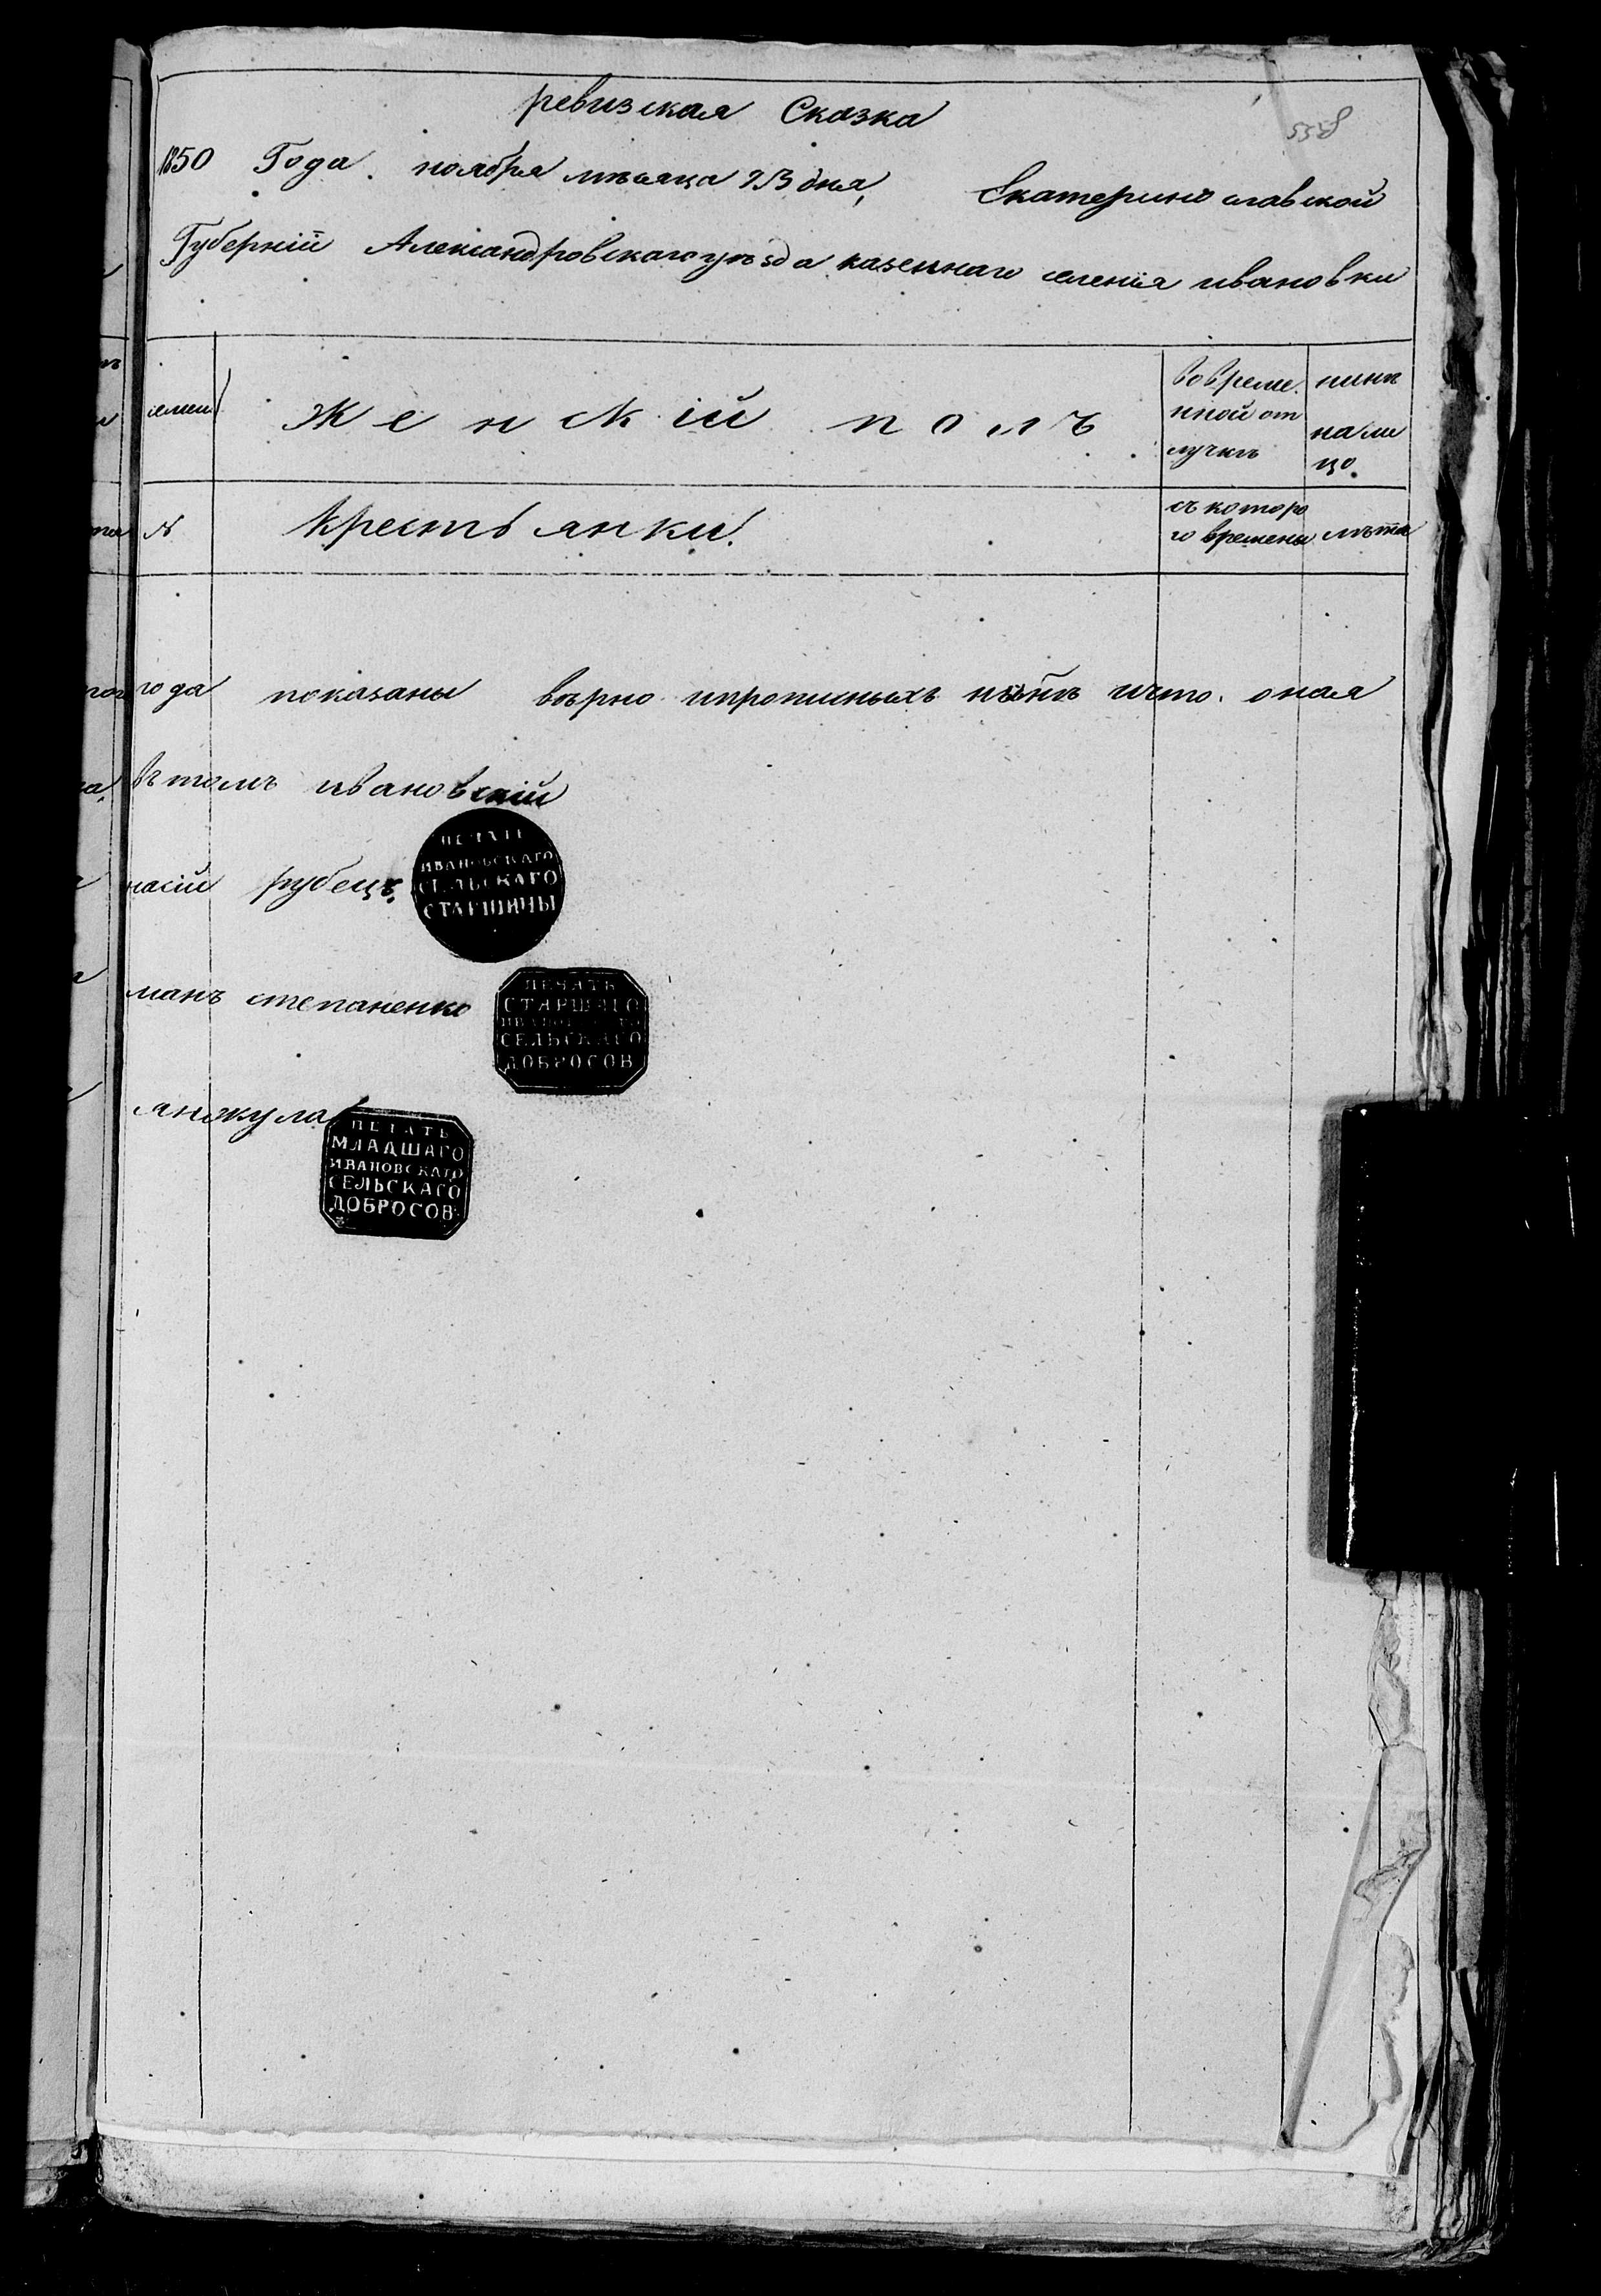 ревизская Сказка
558
1850 Года ноября мѣсяца 23 дня, Екатеринославской
Губерніи Александровскаго уѣзда казеннаго селенія ивановки
семеи
Женскій полъ
вовреме.
нной от
лучкѣ
нынѣ
на ли
цо.
№
крестьянки.
съ которо
го времены
лѣта
года показаны вѣрно ипрописныхъ что. оная
въ томъ ивановскій
насій рубецъ.
ПЕЧАТЬ
ИВАНОВСКАГО
СЕЛЬСКАГО
СТАРШИНЫ
манъ степаненко
ПЕЧАТЬ
СТАРШАГО
ИВАНОВСКАГО
СЕЛЬСКАГО
ДОБРОСОВ
анжула
ПЕЧАТЬ
МЛАДШАГО
ИВАНОВСКАГО
СЕЛЬСКАГО
ДОБРОСОВ: